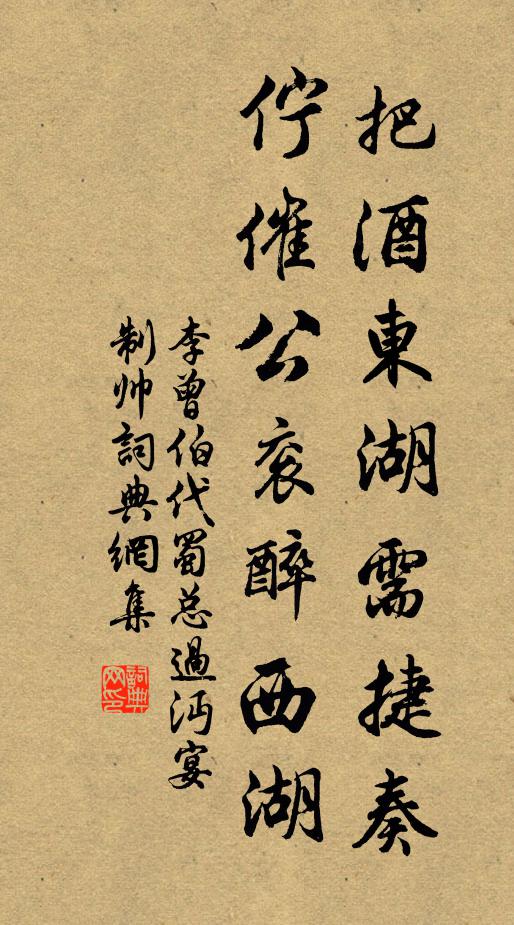 把酒東湖需捷奏
佇催公衮醉西湖
李曾伯代蜀总過沔宴
制帅詞典網集
詞典网印